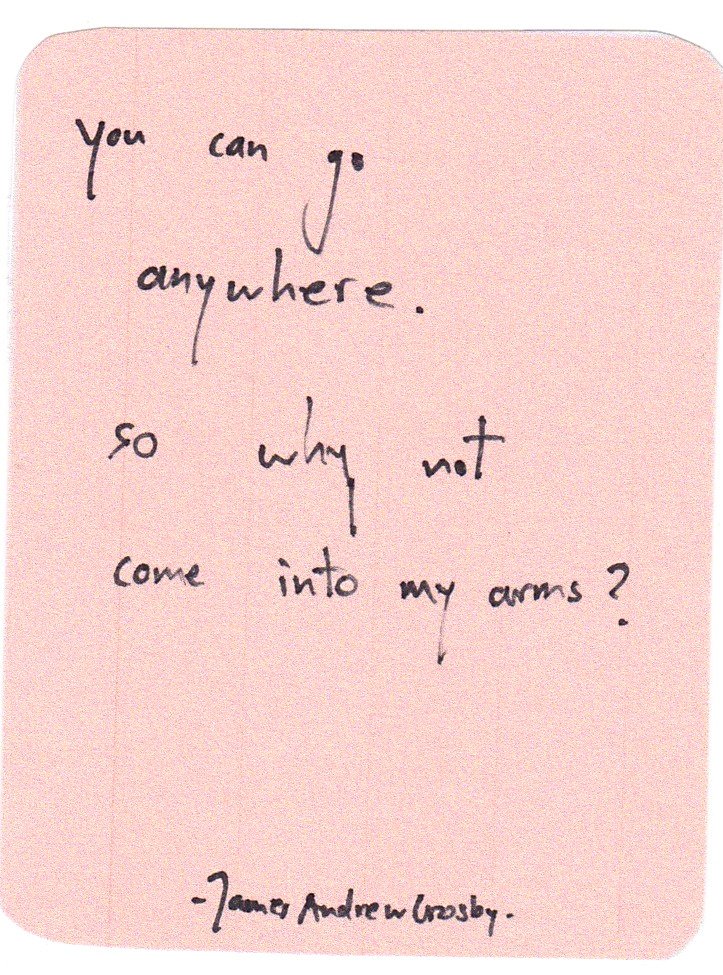 you can go
anywhere.
so why not
come into my arms?
-James Andrew Crosby-